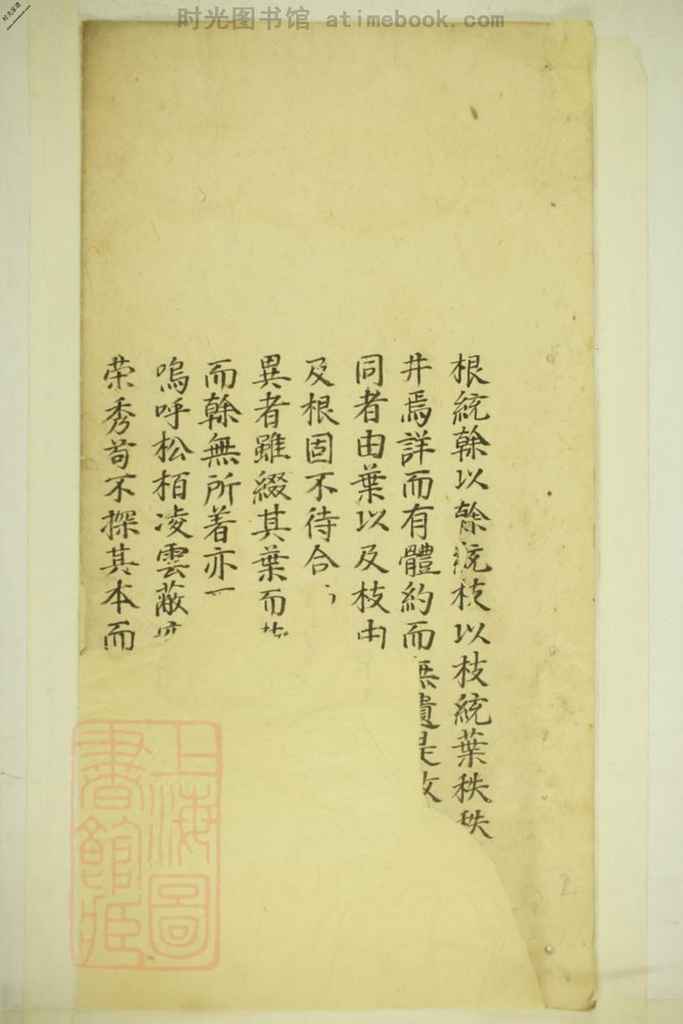 时光图书馆 atimebook.com
根統榦以榦統枝以枝統葉秩秩
井焉詳而有體約而無遺是故
同者由葉以及枝由
及根固不待合
異者雖綴其葉而
而榦無所著亦
嗚呼松栢凌雲蔽
荣秀苟不探其本而
上海圖
書館藏
2